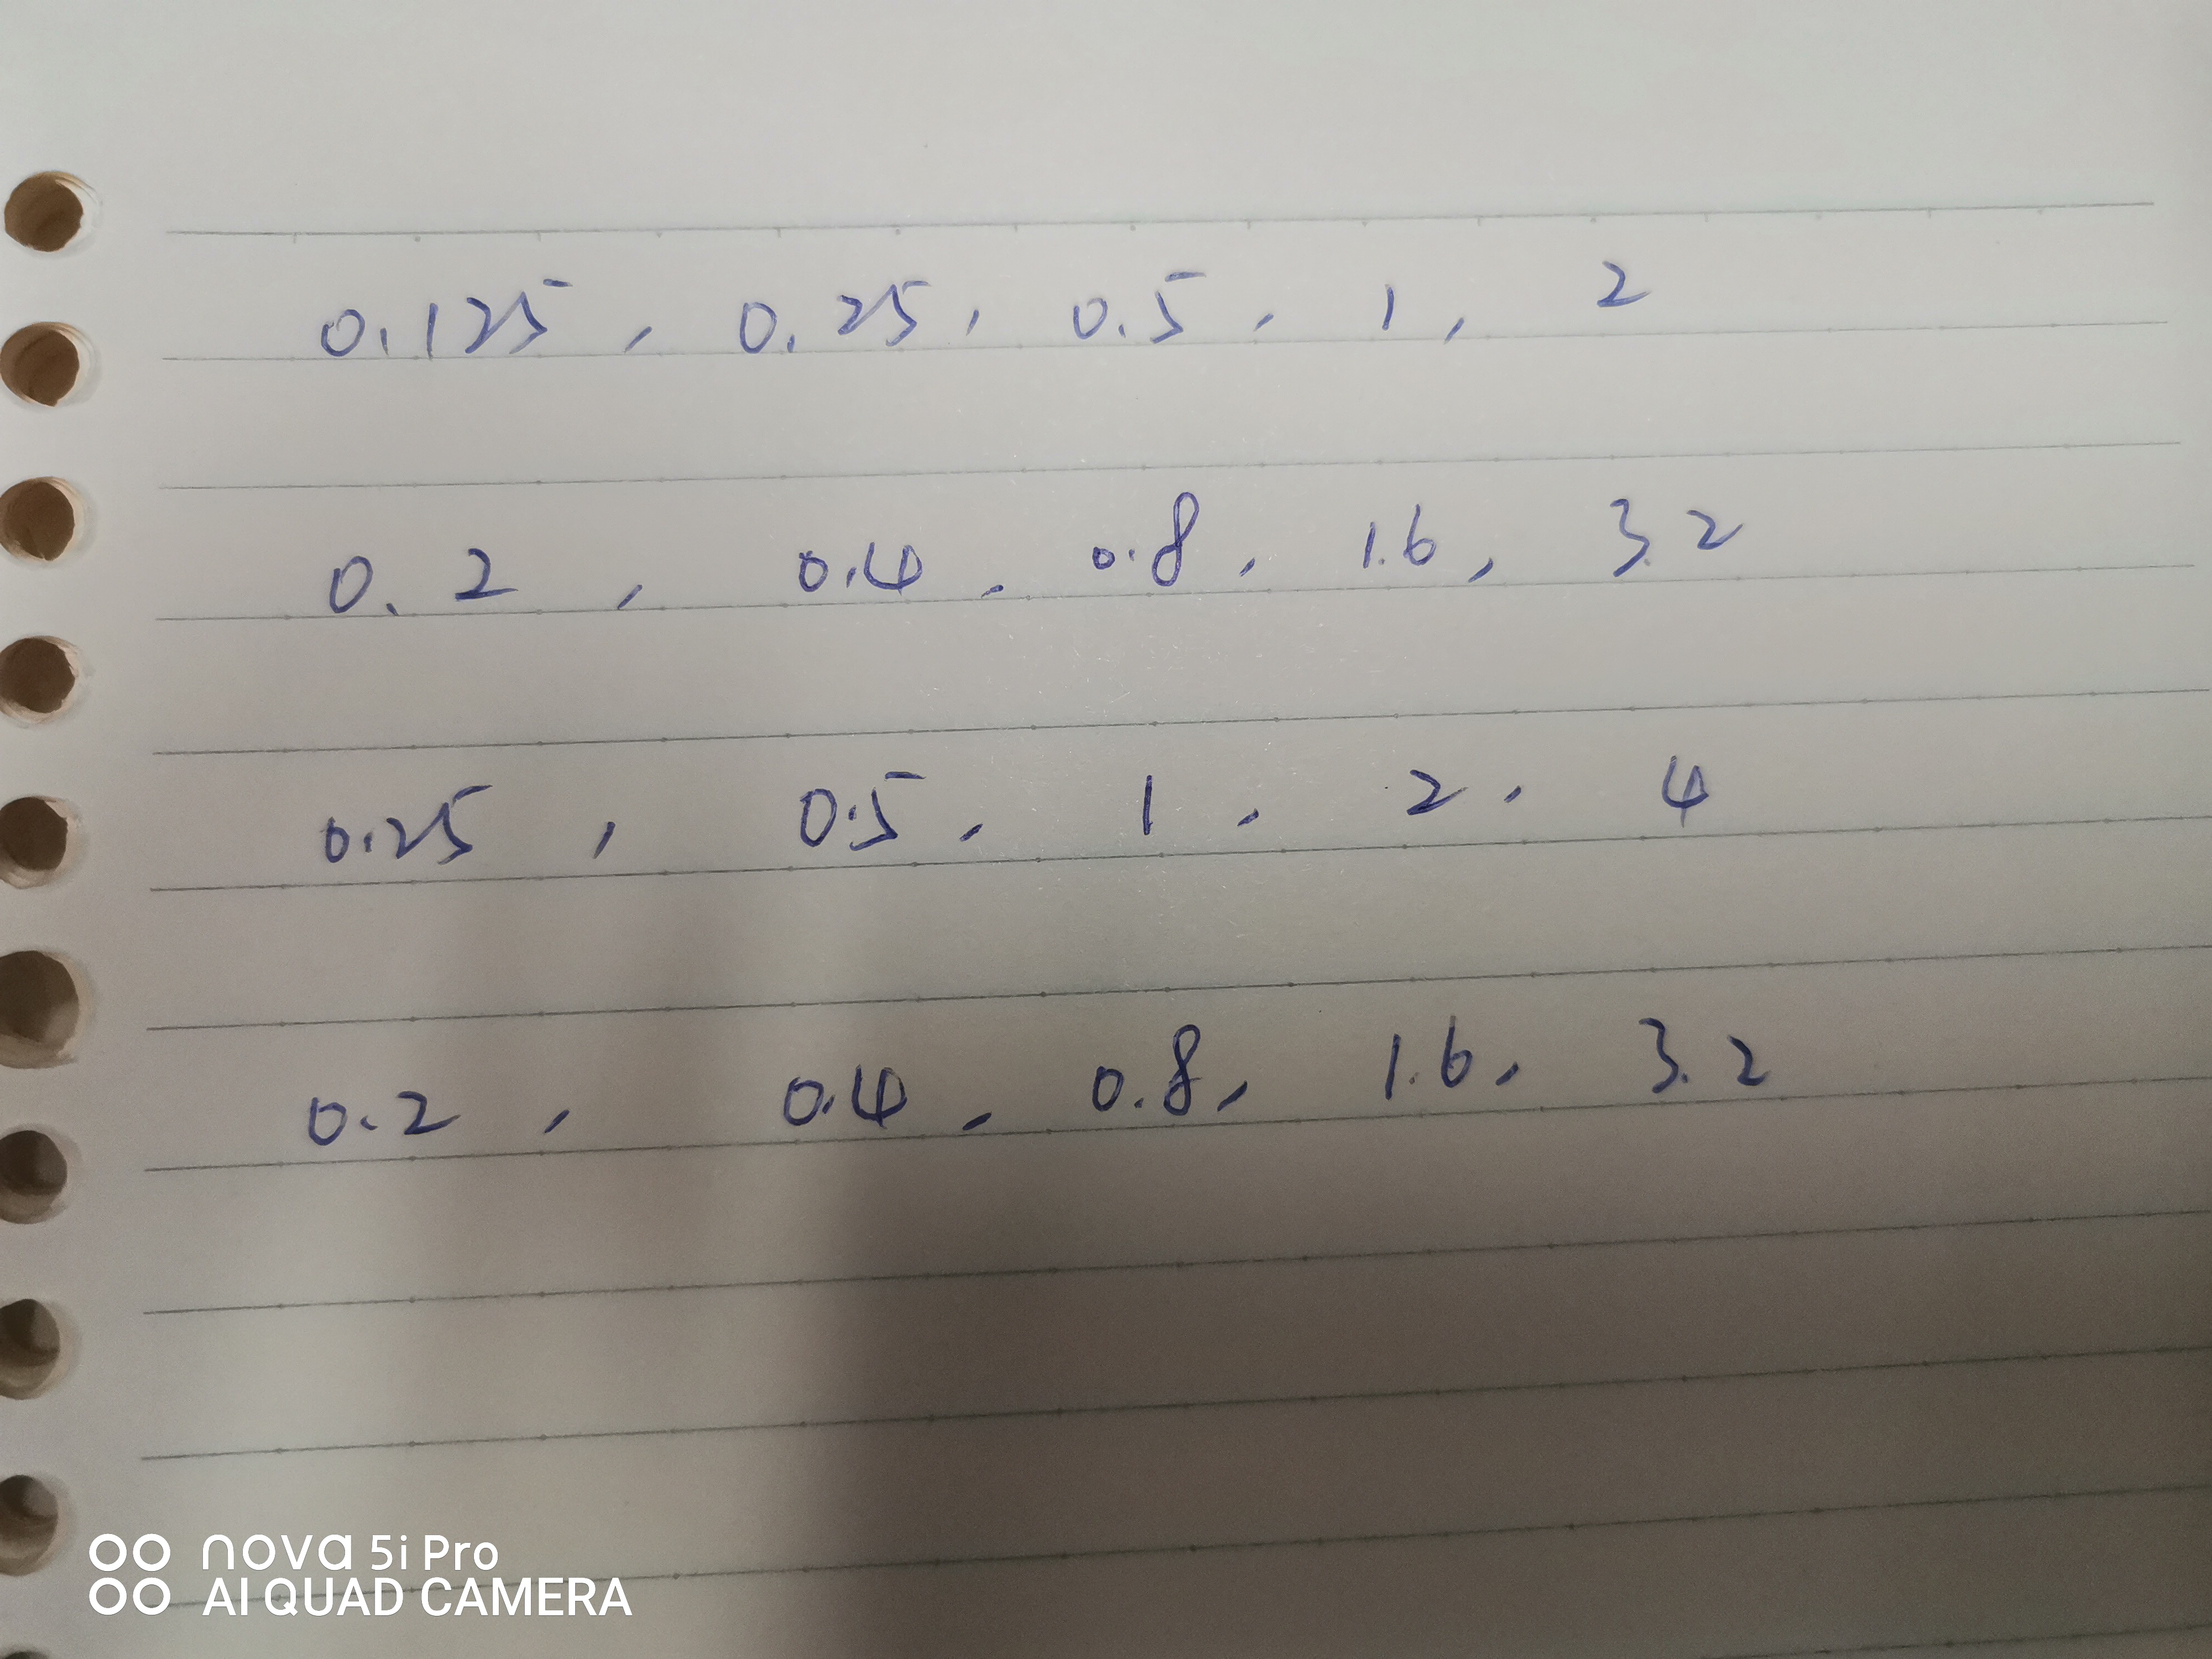 0.125, 0.25, 0.5, 1, 2
0.2, 0.4, 0.8, 1.6, 3.2
0.25, 0.5, 1, 2, 4
0.2, 0.4, 0.8, 1.6, 3.2
nova 5i Pro
AI QUAD CAMERA